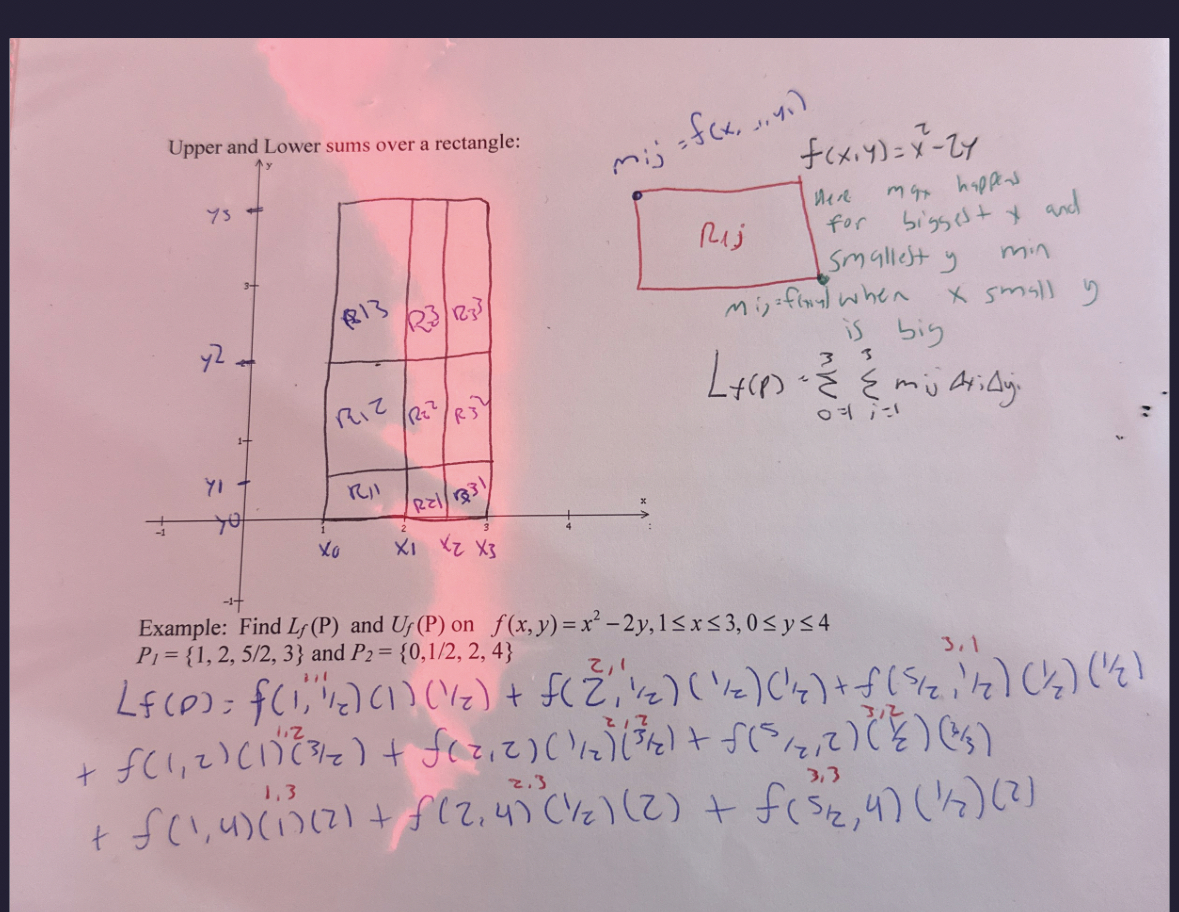 Upper and Lower sums over a rectangle:
mij = f(xi-1, yi)
f(x,y) = x² - 2y
Here max happens
for biggest x and
smallest y min
mij = f(x,y) when x small y
is big
Rij
Lf(P) = 3Σ0=1 3Σi=1 mij Δxi Δyi
y
y3
3
y2
1
y1
y0
R13 R23 R33
R12 R22 R32
R11 R21 R31
x
-1 1 2 3 4
x0 x1 x2 x3
-1
Example: Find Lf(P) and Uf(P) on f(x,y) = x² − 2y, 1 ≤ x ≤ 3, 0 ≤ y ≤ 4
P1 = {1, 2, 5/2, 3} and P2 = {0,1/2, 2, 4}
1,1 2,1 3,1
Lf(P) = f(1, 1/2)(1)(1/2) + f(2, 1/2)(1/2)(1/2) + f(5/2, 1/2)(1/2)(1/2)
1,2 2,2 3,2
+ f(1,2)(1)(3/2) + f(2,2)(1/2)(3/2) + f(5/2,2)(1/2)(3/2)
1,3 2,3 3,3
+ f(1,4)(1)(2) + f(2,4)(1/2)(2) + f(5/2,4)(1/2)(2)